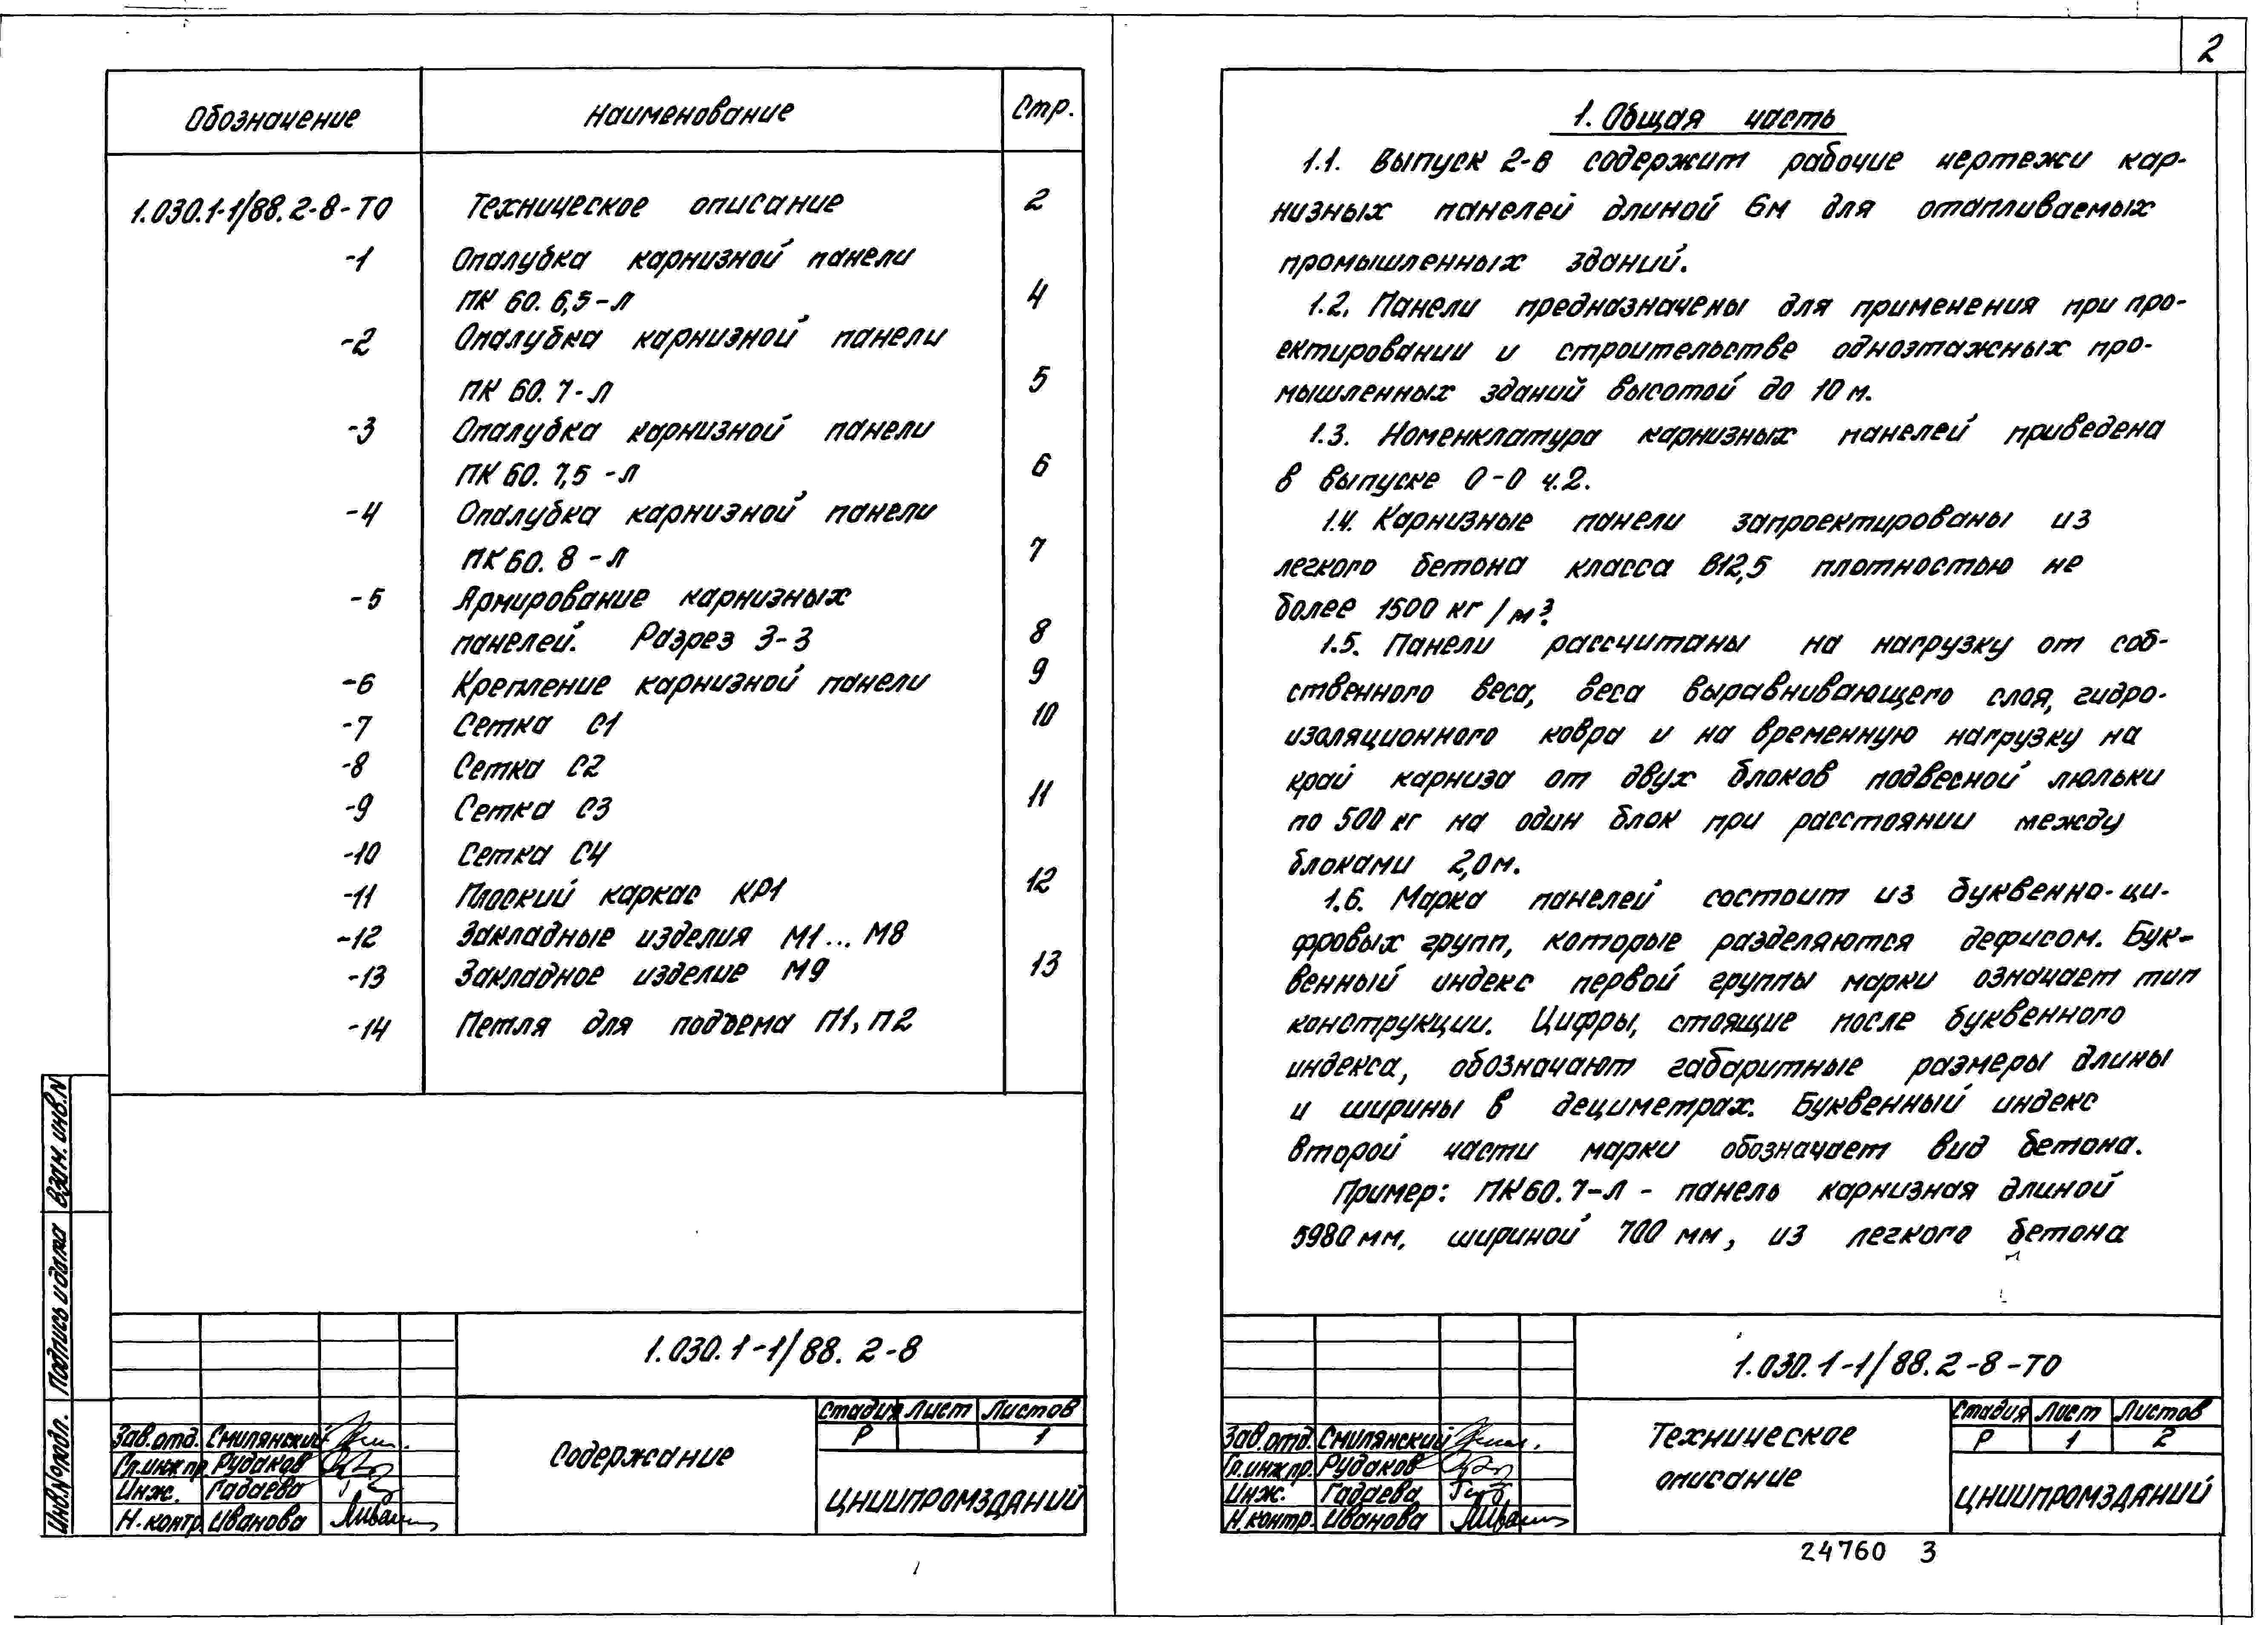 Обозначение Наименование Стр.
1.030.1-1/88.2-8-ТО Техническое описание 2
-1 Опалубка карнизной панели
ПК 60. 6,5-Л 4
-2 Опалубка карнизной панели
ПК 60. 7-Л 5
-3 Опалубка карнизной панели
ПК 60. 7,5-Л 6
-4 Опалубка карнизной панели
ПК 60. 8-Л 7
-5 Армирование карнизных
панелей. Разрез 3-3 8
-6 Крепление карнизной панели 9
-7 Сетка С1 10
-8 Сетка С2
-9 Сетка С3 11
-10 Сетка С4
-11 Плоский каркас КР1 12
-12 Закладные изделия М1...М8
-13 Закладное изделие М9 13
-14 Петля для подъема П1, П2
Инв.№ подл. Подпись и дата Взам. инв.N
1.030.1-1/88. 2-8
Зав.отд. Смилянский
Гл.инж пр. Рудаков
Инж. Гадаева
Н.контр. Иванова
Содержание
Стадия Лист Листов
Р 1
ЦНИИПРОМЗДАНИЙ
2
1. Общая часть
1.1. Выпуск 2-8 содержит рабочие чертежи кар-
низных панелей длиной 6м для отапливаемых
промышленных зданий.
1.2. Панели предназначены для применения при про-
ектировании и строительстве одноэтажных про-
мышленных зданий высотой до 10 м.
1.3. Номенклатура карнизных панелей приведена
в выпуске 0-0 ч.2.
1.4. Карнизные панели запроектированы из
легкого бетона класса В12,5 плотностью не
более 1500 кг/м³.
1.5. Панели рассчитаны на нагрузку от соб-
ственного веса, веса выравнивающего слоя, гидро-
изоляционного ковра и на временную нагрузку на
край карниза от двух блоков подвесной люльки
по 500 кг на один блок при расстоянии между
блоками 2,0м.
1.6. Марка панелей состоит из буквенно-ци-
фровых групп, которые разделяются дефисом. Бук-
венный индекс первой группы марки означает тип
конструкции. Цифры, стоящие после буквенного
индекса, обозначают габаритные размеры длины
и ширины в дециметрах. Буквенный индекс
второй части марки обозначает вид бетона.
Пример: ПК60.7-Л - панель карнизная длиной
5980 мм, шириной 700 мм, из легкого бетона
1.030.1-1/88.2-8-ТО
Зав.отд. Смилянский
Гл.инж.пр. Рудаков
Инж. Гадаева
Н.контр. Иванова
Техническое
описание
Стадия Лист Листов
Р 1 2
ЦНИИПРОМЗДАНИЙ
24760 3